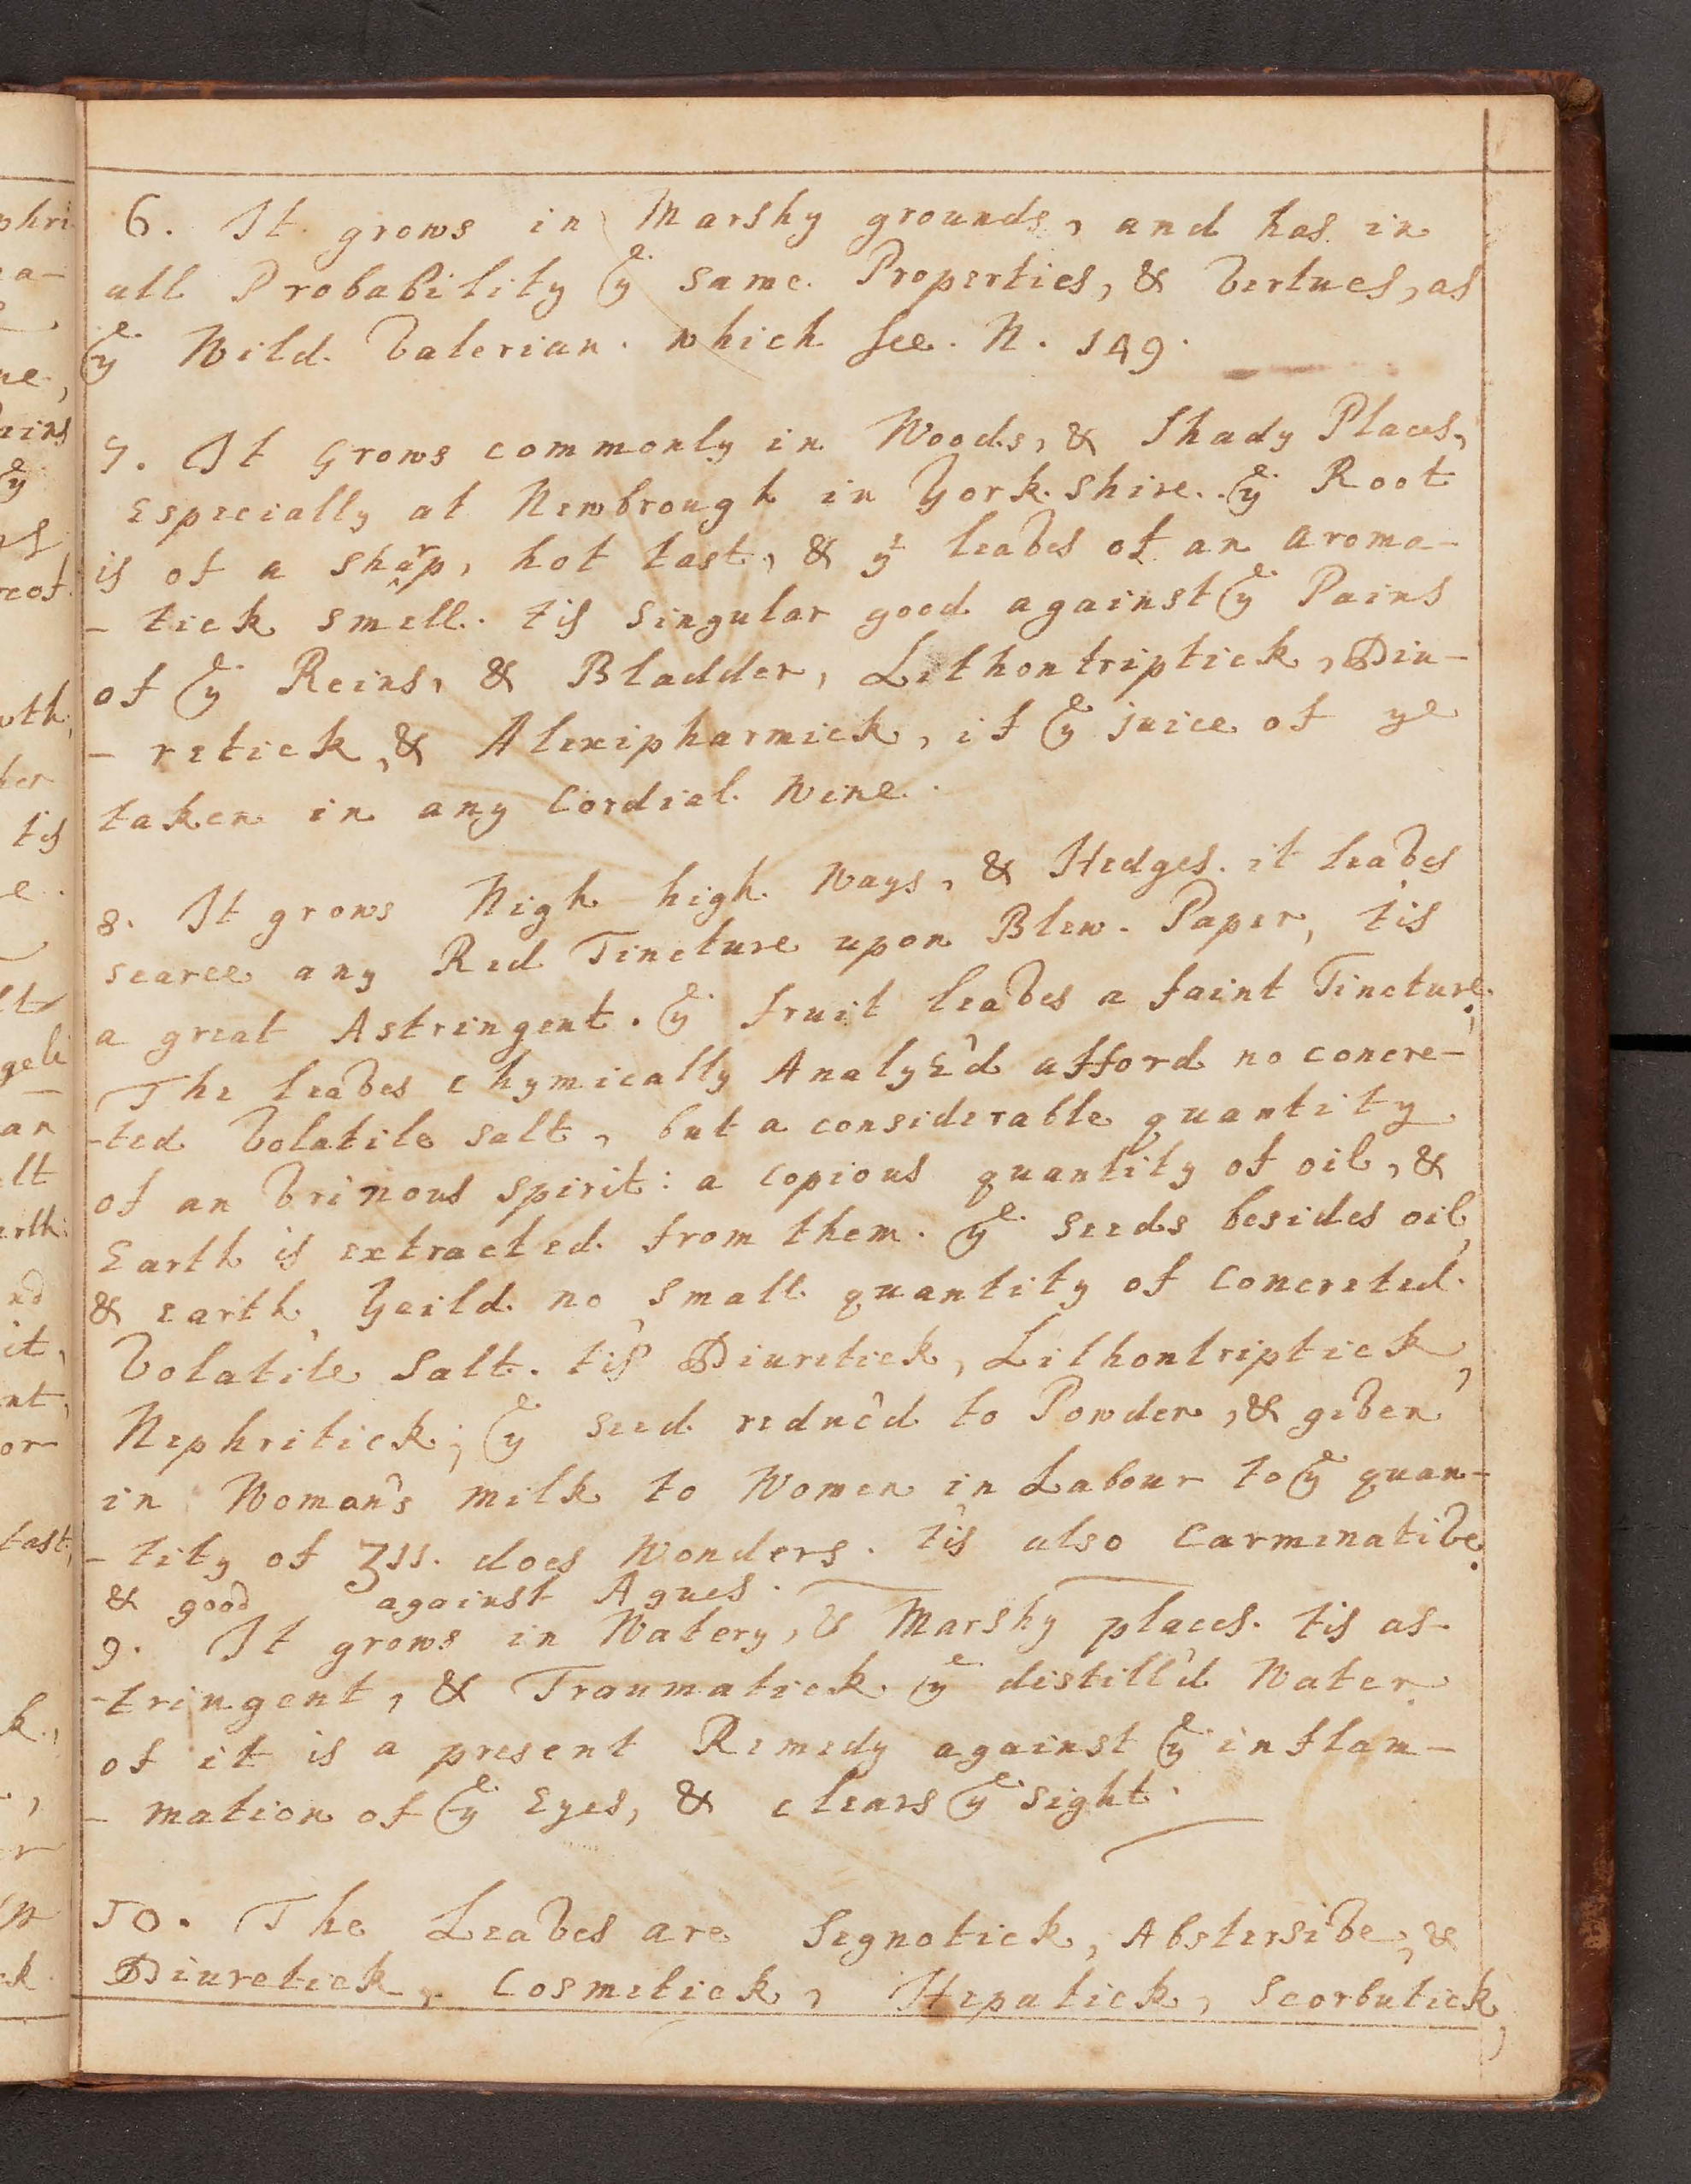 6. It grows in Marshy grounds, and has in
all Probability ye same Properties, & Vertues, as
ye Wild Valerian. which see. N. 149.
7. It Grows commonly in Woods, & Shady Places,
Especially at Newbrough in York.shire. ye Root
is of a sharp, hot tast, & ye leaves of an aroma-
- tick smell. tis singular good against ye Pains
of ye Reins, & Bladder, Lithontriptick, Diu-
- retick, & Alexipharmick, if ye juice of ye
taken in any Cordial Wine.
8. It grows Nigh high Ways, & Hedges. it leaves
scarce any Red Tincture upon Blew. Paper, tis
a great Astringent. ye fruit leaves a faint Tincture.
The leaves chymically Analys'd afford no concre-
-ted Volatile salt, but a considerable quantity
of an Vrinous spirit: a copious quantity of oil, &
Earth is extracted from them. ye seeds besides oil,
& earth, Yeild no small quantity of concreted
Volatile Salt. tis Diuretick, Lithontriptick,
Nephritick; ye seed reduc'd to Powder, & given
in Woman's milk to Women in Labour to ye quan-
- tity of ʒss. does Wonders. tis also Carminative.
& good against Agues.
9. It grows in Watery, & Marshy places. tis as-
-tringent, & Traumatick ye distill'd Water
of it is a present Remedy against ye inflam-
- mation of ye Eyes, & clears ye sight.
10. The Leaves are Segnotick, Abstersive, &
Diuretick, Cosmetick, Hepatick, Scorbutick,